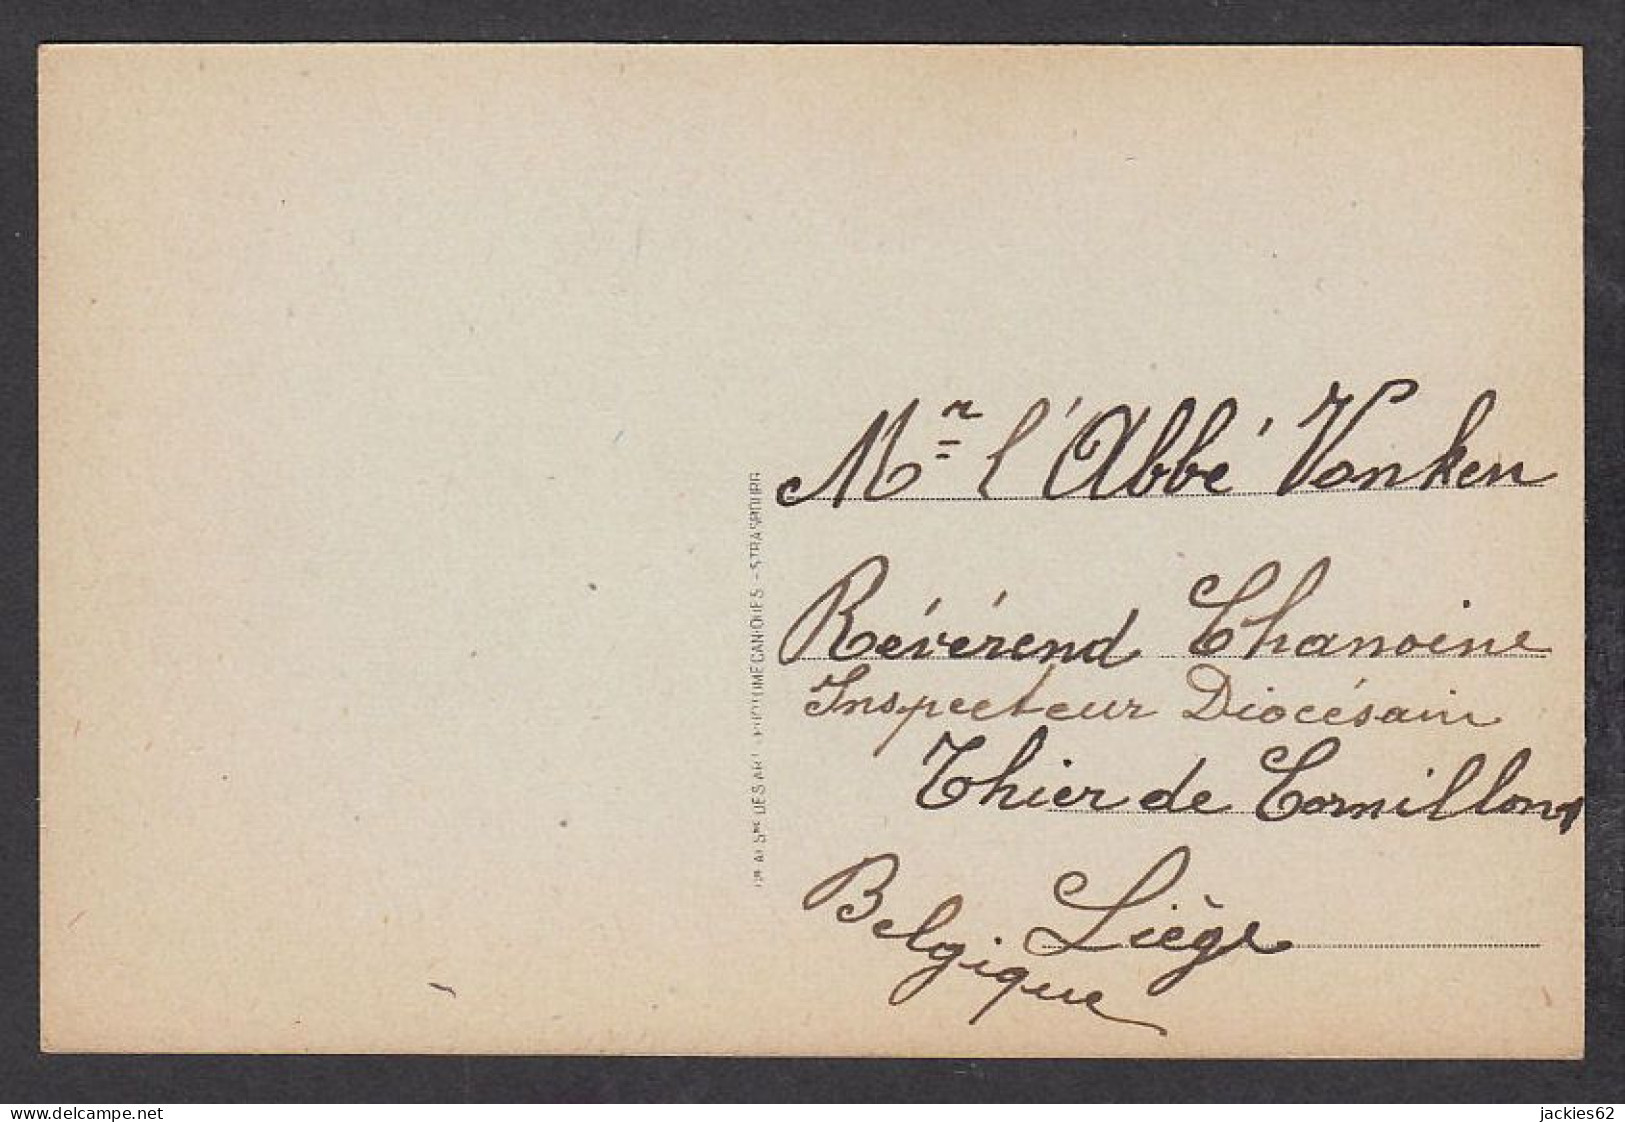 Mr l'Abbé Vonken
Révérend Chanoine
Inspecteur Diocésain
Thier de Cornillon
Liège
Belgique
ALSne DES ARTS PHOTOMÉCANIQUES - STRASBOURG
www.delcampe.net
jackies62